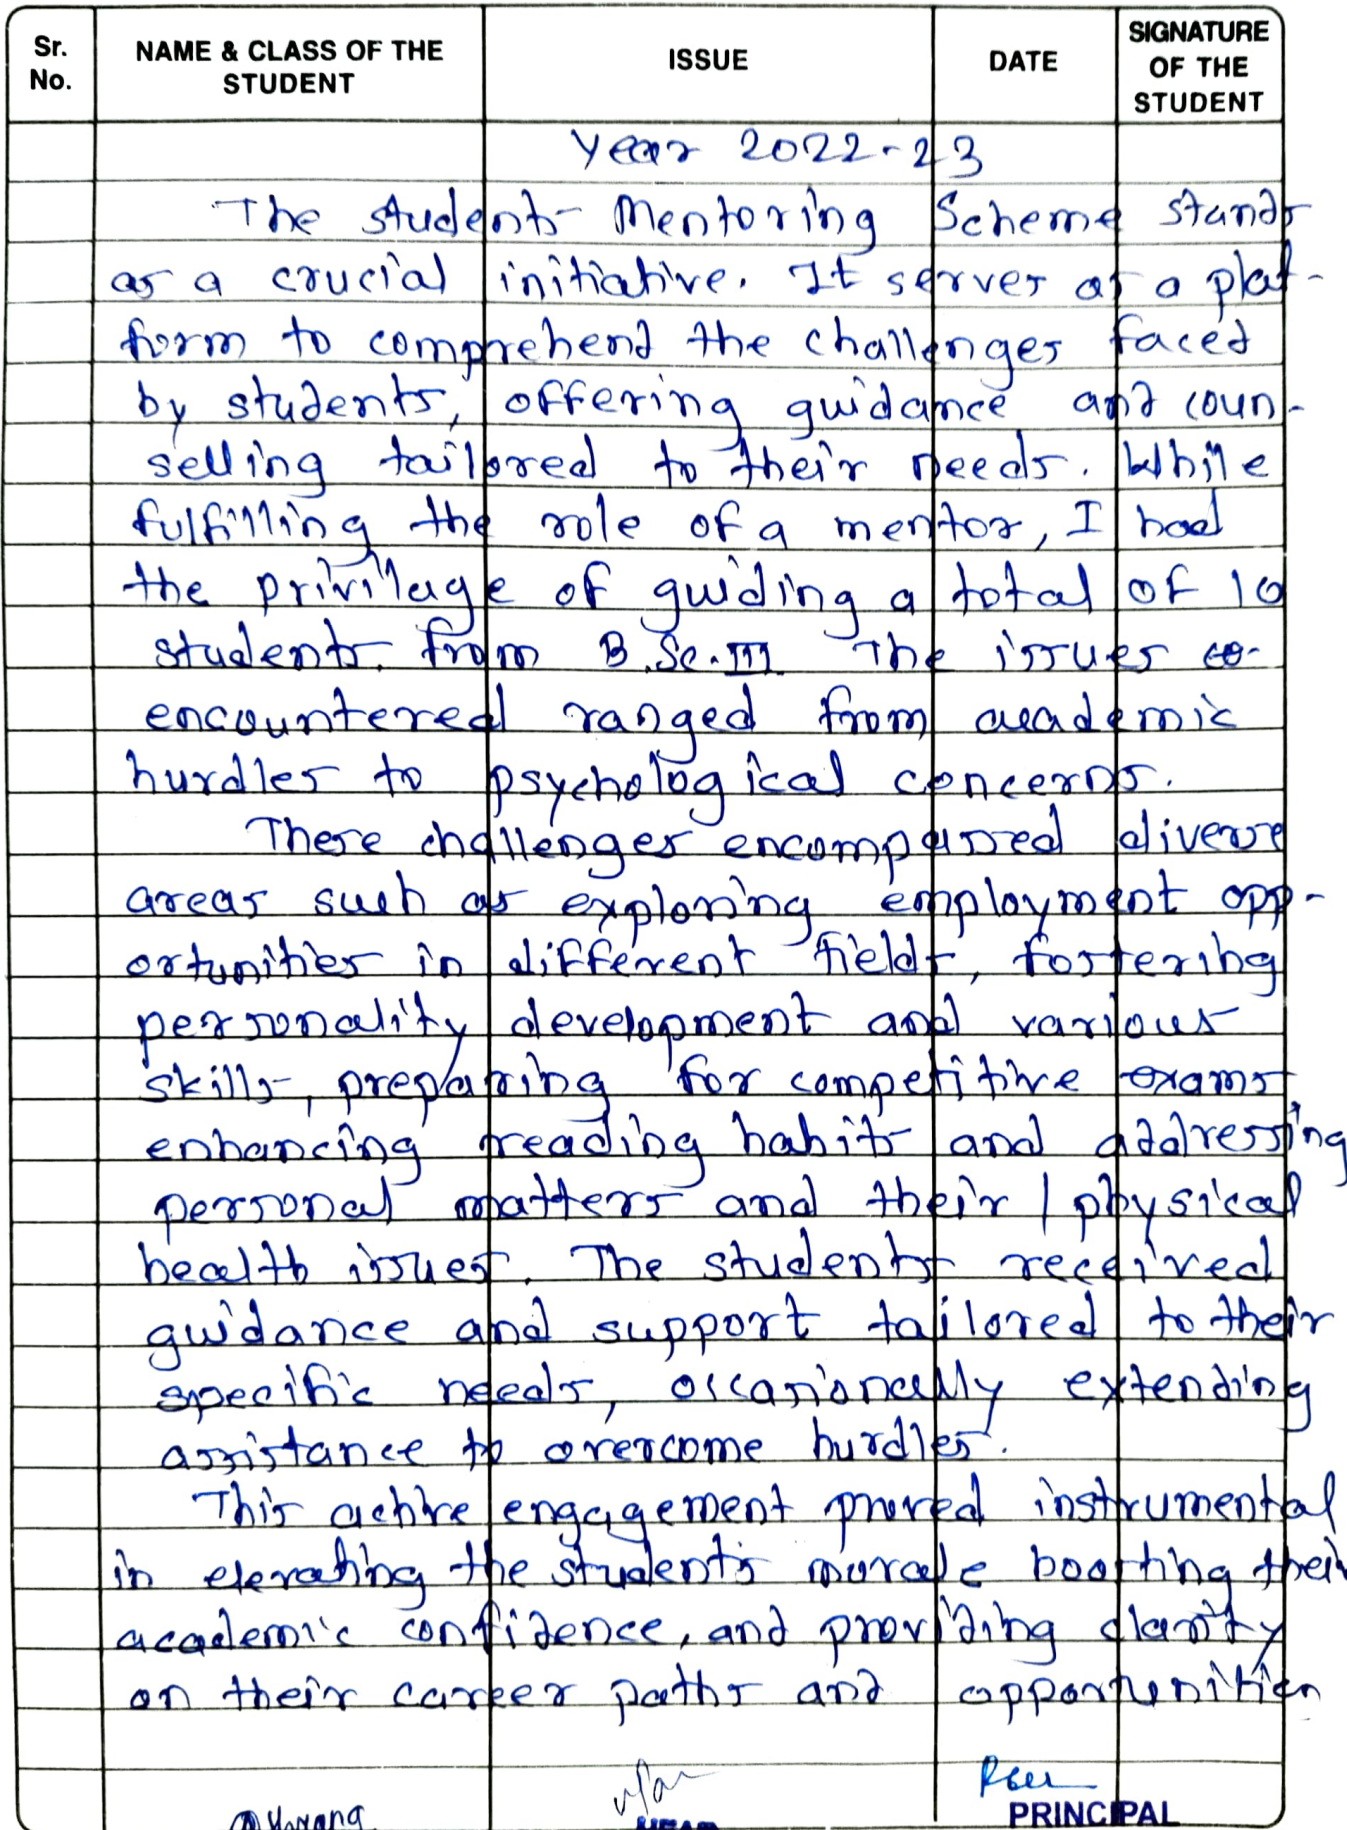 Sr. No. NAME & CLASS OF THE STUDENT ISSUE DATE SIGNATURE OF THE STUDENT
Year 2022-23
The students Mentoring Scheme stands
as a crucial initiative. It serves as a plat-
form to comprehend the challenges faced
by students, offering guidance and coun-
selling tailored to their needs. While
fulfilling the role of a mentor, I had
the privilage of guiding a total of 10
students from B.Sc.III The issues
encountered ranged from academic
hurdles to psychological concerns.
These challenges encompassed diverse
areas such as exploring employment opp-
ortunities in different fields, fostering
personality development and various
skills, preparing for competitive exams
enhancing reading habits and addressing
personal matters and their / physical
health issues. The students received
guidance and support tailored to their
specific needs, occasionally extending
assistance to overcome hurdles.
This active engagement proved instrumental
in elevating the students morale boosting their
academic confidence, and providing clarity
on their career paths and opportunities
PRINCIPAL